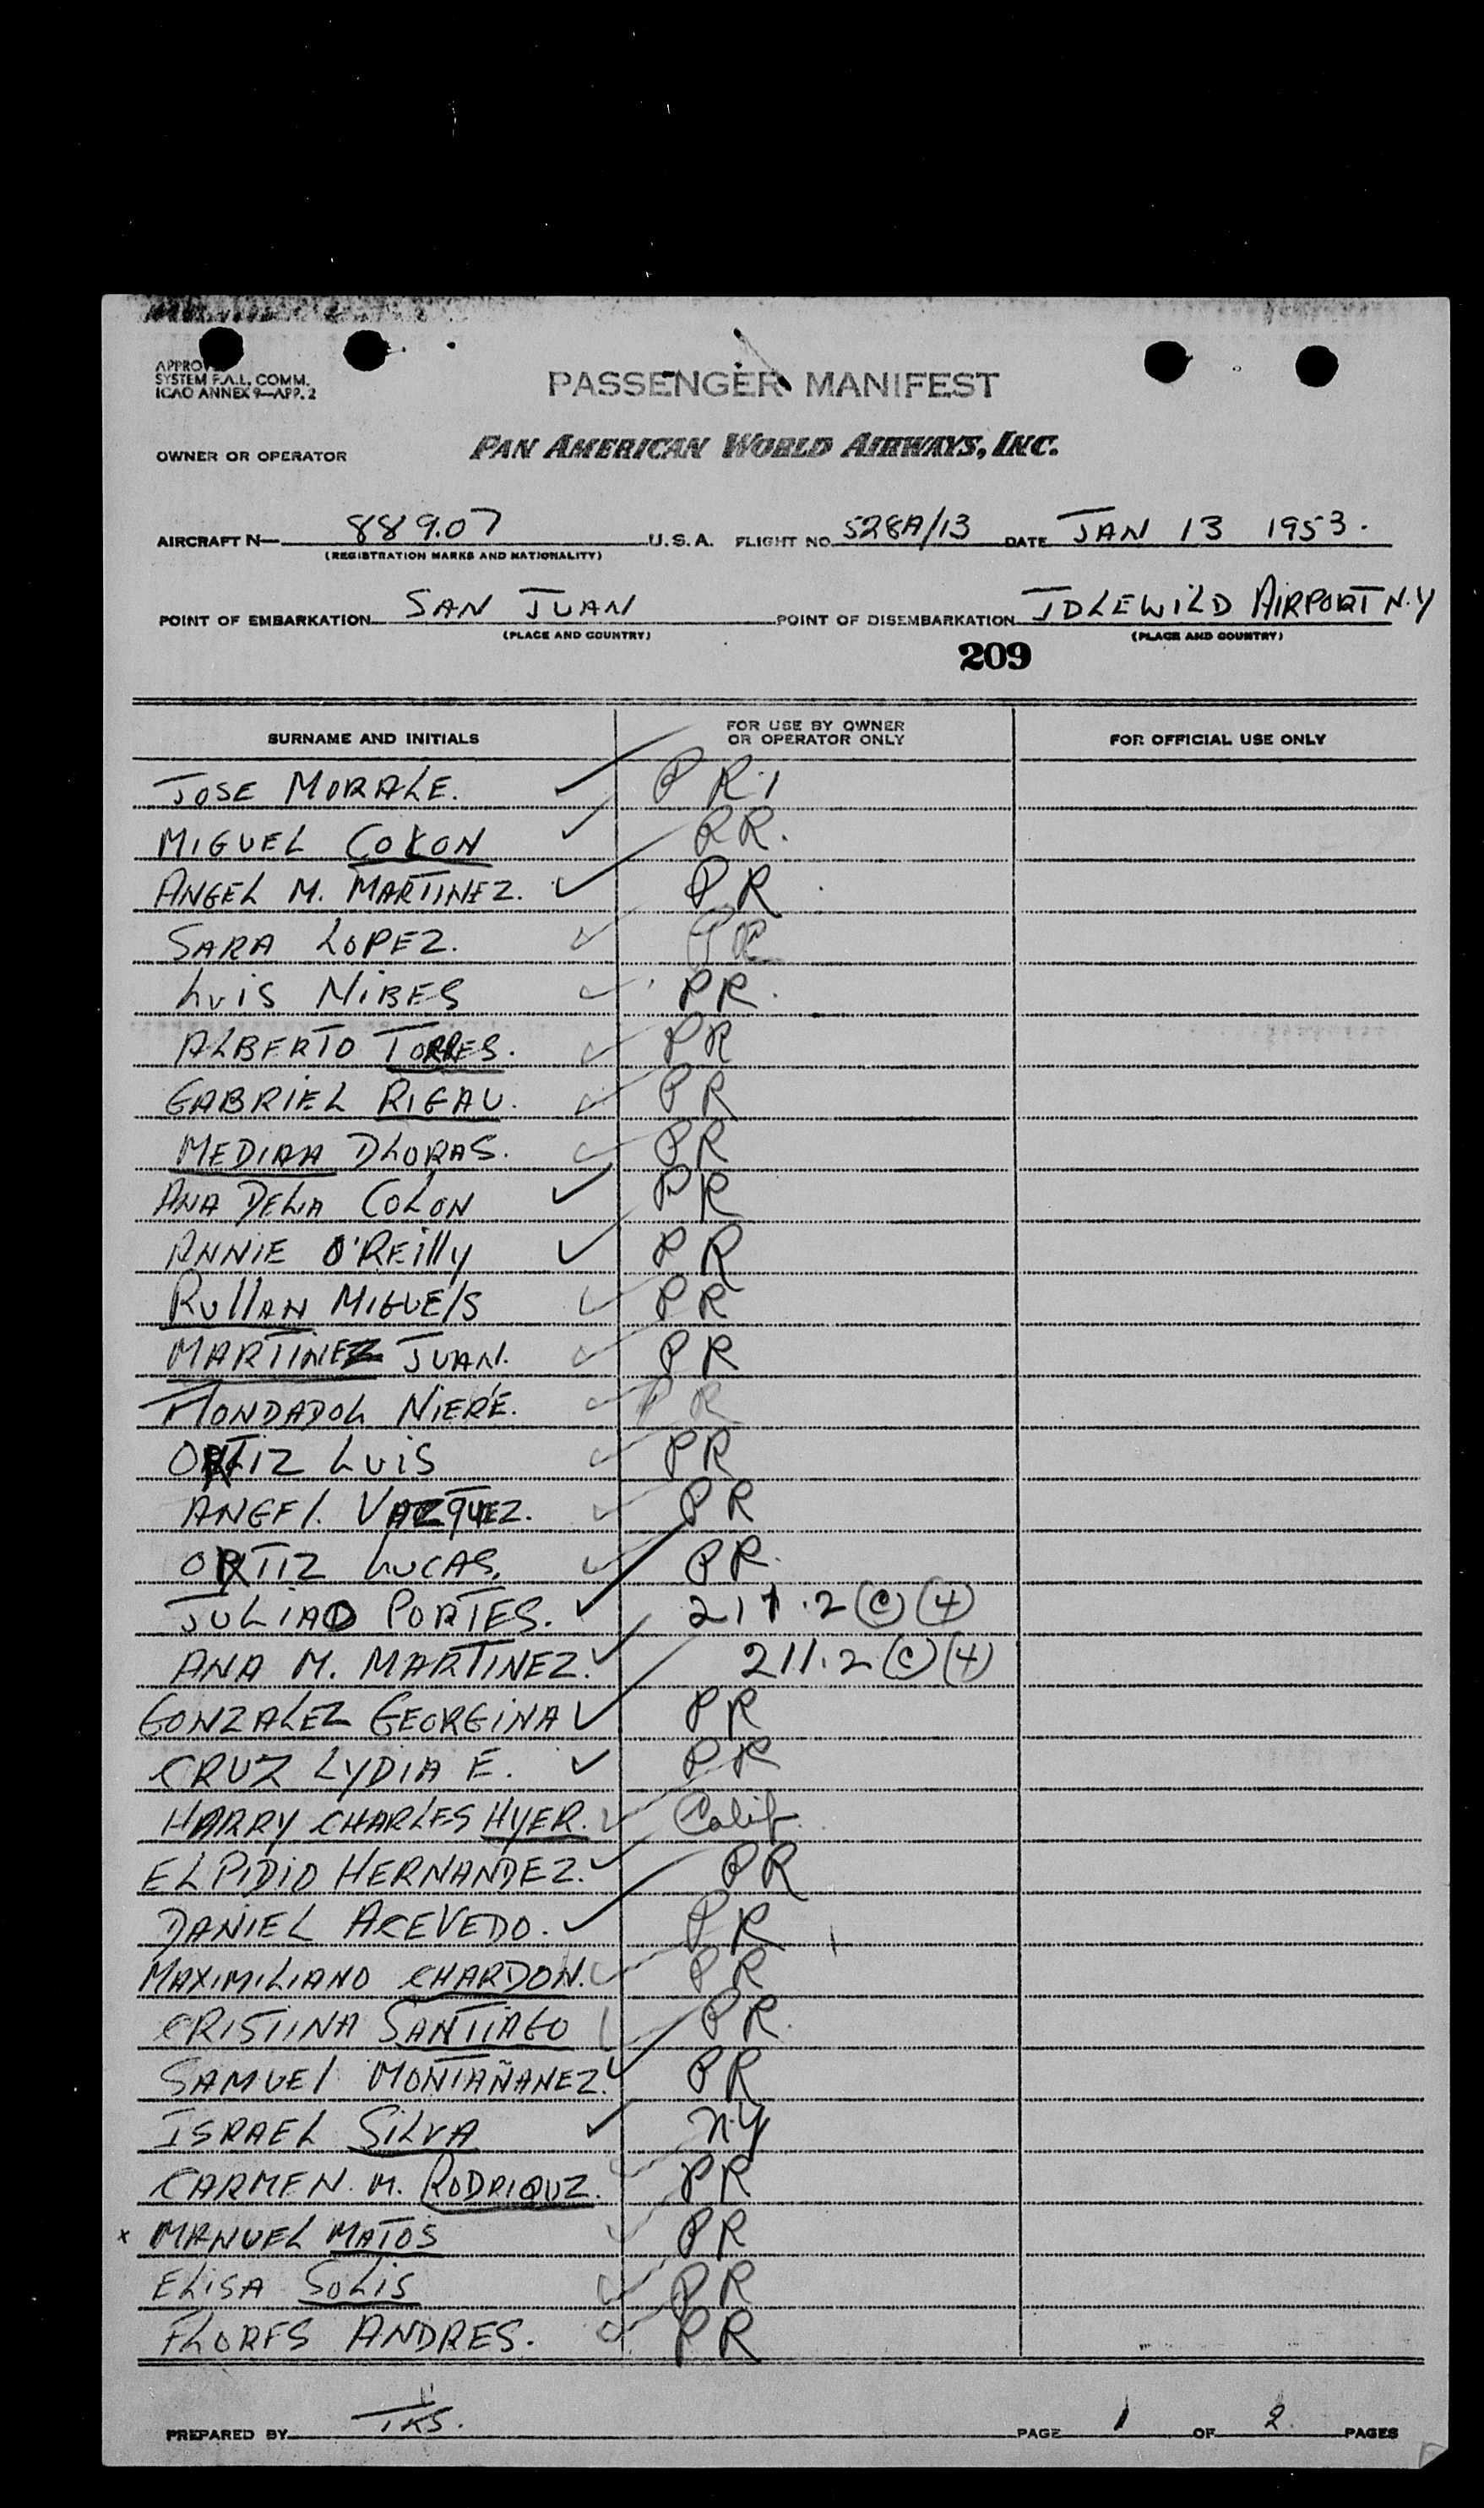 APPROVED
SYSTEM F.A.L. COMM.
ICAO ANNEX 9—APP. 2
PASSENGER MANIFEST
OWNER OR OPERATOR PAN AMERICAN WORLD AIRWAYS, INC.
AIRCRAFT N— 88907 U.S.A. FLIGHT NO. 528A/13 DATE JAN 13 1953.
(REGISTRATION MARKS AND NATIONALITY)
POINT OF EMBARKATION SAN JUAN POINT OF DISEMBARKATION IDLEWILD AIRPORT N.Y
(PLACE AND COUNTRY) (PLACE AND COUNTRY)
209
SURNAME AND INITIALS FOR USE BY OWNER OR OPERATOR ONLY FOR OFFICIAL USE ONLY
JOSE MORALE. ✓ PR
MIGUEL COLON ✓ PR.
ANGEL M. MARTINEZ. ✓ PR
SARA LOPEZ. ✓ PR
LUIS NIBES ✓ PR.
ALBERTO TORRES. ✓ PR
GABRIEL RIGAU. ✓ PR
MEDINA DLORAS. ✓ PR
ANA DELIA COLON ✓ PR
ANNIE O'REILLY ✓ PR
RULLAN MIGUELS ✓ PR
MARTINEZ JUAN. ✓ PR
MONDADOL ✓ PR
ORTIZ LUIS ✓ PR
ANGEL. VAZQUEZ. ✓ PR
ORTIZ LUCAS. ✓ PR.
JULIAO PORTES. ✓ 211.2 (C) (4)
ANA M. MARTINEZ. ✓ 211.2 (C) (4)
GONZALEZ GEORGINA ✓ PR
CRUZ LYDIA E. ✓ PR
HARRY CHARLES HYER. ✓ Calif.
ELPIDIO HERNANDEZ. ✓ PR
DANIEL ACEVEDO. ✓ PR
MAXIMILIANO CHARDON. ✓ PR
CRISTINA SANTIAGO ✓ PR.
SAMUEL MONTAÑANEZ. ✓ PR
ISRAEL SILVA ✓ NY
CARMEN. M. RODRIQUZ. ✓ PR
x MANUEL MATOS ✓ PR
ELISA SOLIS ✓ PR
FLORES ANDRES. ✓ PR
PREPARED BY TKS. PAGE 1 OF 2 PAGES